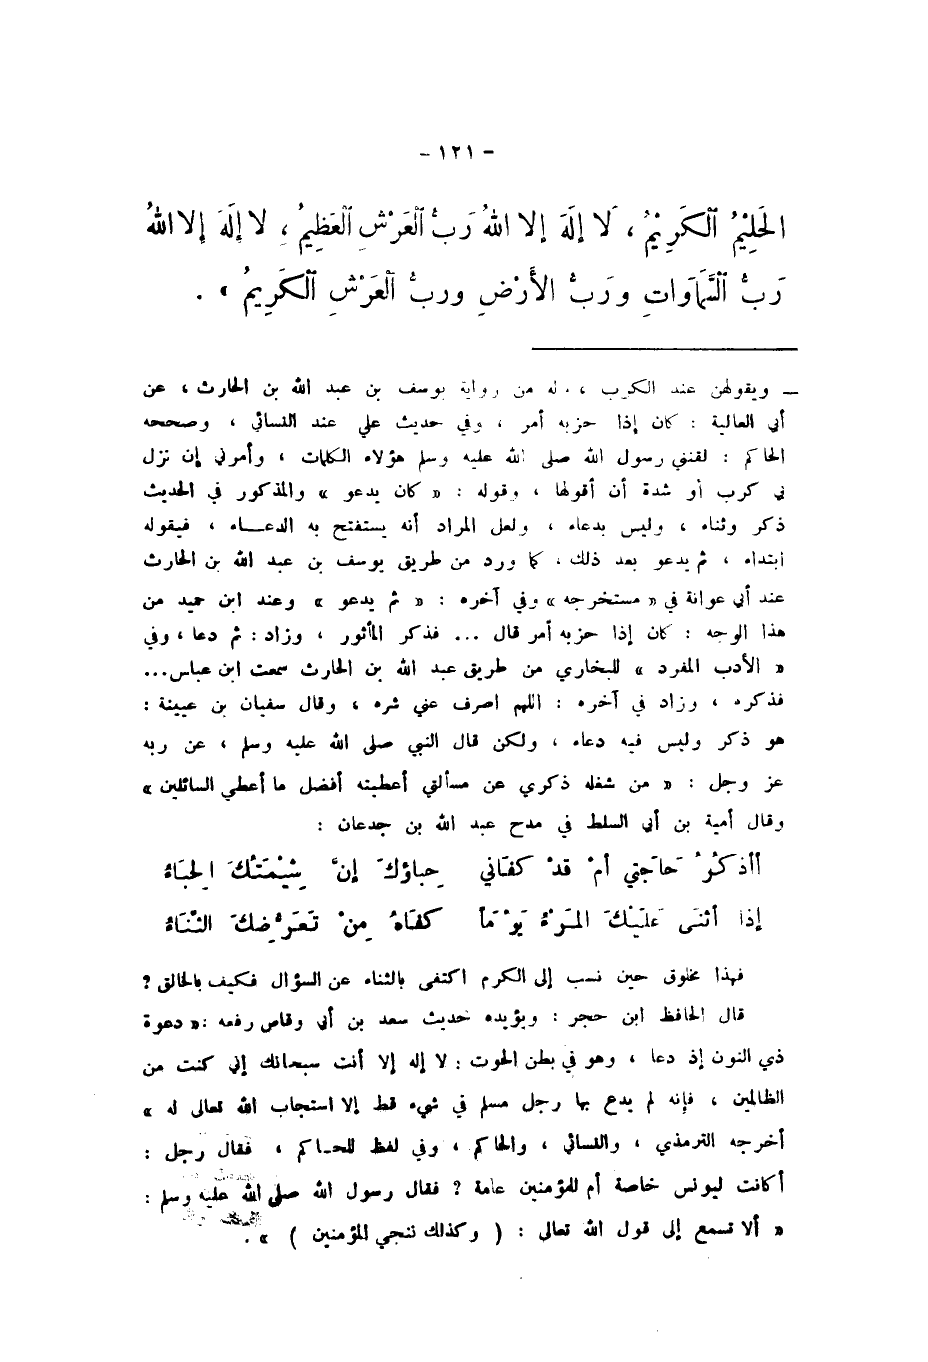 - ١٢١ -
الحَلِيْمُ ٱلكَرِيْمُ ، لَا إِلَهَ إلا اللهُ رَبُّ ٱلعَرْشِ ٱلعَظِيمُ ، لا إِلَهَ إِلا اللهُ
رَبُّ ٱلسَّمَاوَاتِ ورَبُّ الأَرْضِ وربُّ ٱلعَرْشِ ٱلكَرِيمُ » .
ــ ويقولهن عند الكرب ، وله من رواية يوسف بن عبد الله بن الحارث ، عن
أبي العالية : كان إذا حزبه أمر ، وفي حديث علي عند النسائي ، وصححه
الحاكم : لقنني رسول الله صلى الله عليه وسلم هؤلاء الكلمات ، وأمرني إن نزل
بي كرب أو شدة أن أقولها ، وقوله : « كان يدعو » والمذكور في الحديث
ذكر وثناء ، وليس بدعاء ، ولعل المراد أنه يستفتح به الدعـــاء ، فيقوله
ابتداء ، ثم يدعو بعد ذلك ، كما ورد من طريق يوسف بن عبد الله بن الحارث
عند أبي عوانة في « مستخرجه » وفي آخره : « ثم يدعو » وعند ابن حميد من
هذا الوجه : كان إذا حزبه أمر قال ... فذكر المأثور ، وزاد : ثم دعا ، وفي
« الأدب المفرد » للبخاري من طريق عبد الله بن الحارث سمعت ابن عباس...
فذكره ، وزاد في آخره : اللهم اصرف عني شره ، وقال سفيان بن عيينة :
هو ذكر وليس فيه دعاء ، ولكن قال النبي صلى الله عليه وسلم ، عن ربه
عز وجل : « من شغله ذكري عن مسألتي أعطيته أفضل ما أعطي السائلين »
وقال أمية بن أبي السلط في مدح عبد الله بن جدعان :
أأذكُرُ حَاجَتِي أمْ قدْ كفَاني حِباؤكَ إنَّ شِيْمَتَكَ الحِبَاءُ
إذا أثنَى عَلَيْكَ المَرْءُ يَوْمَاً كفَاهُ مِنْ تَعَرُّضِكَ الثنَاءُ
فهذا مخلوق حين نسب إلى الكرم اكتفى بالثناء عن السؤال فكيف بالخالق ؟
قال الحافظ ابن حجر : ويؤيده حديث سعد بن أبي وقاص رفعه : « دعوة
ذي النون إذ دعا ، وهو في بطن الحوت : لا إله إلا أنت سبحانك إني كنت من
الظالمين ، فإنه لم يدع بها رجل مسلم في شيء قط إلا استجاب الله تعالى له »
أخرجه الترمذي ، والنسائي ، والحاكم ، وفي لفظ للحـاكم ، فقال رجل :
أكانت ليونس خاصة أم للمؤمنين عامة ؟ فقال رسول الله صلى الله عليه وسلم :
« ألا تسمع إلى قول الله تعالى : ( وكذلك ننجي المؤمنين ) » .